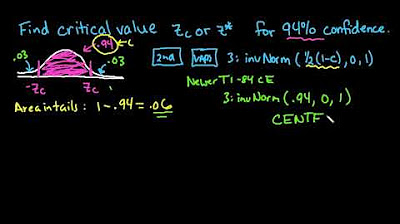 Find critical value zc or z* for 94% confidence.
.94 ← C
.03
.03
2nd VARS 3: invNorm (½(1-C), 0, 1)
-zc zc
Newer TI-84 CE
Area in tails: 1 - .94 = .06
3: invNorm (.94, 0, 1)
CENTE